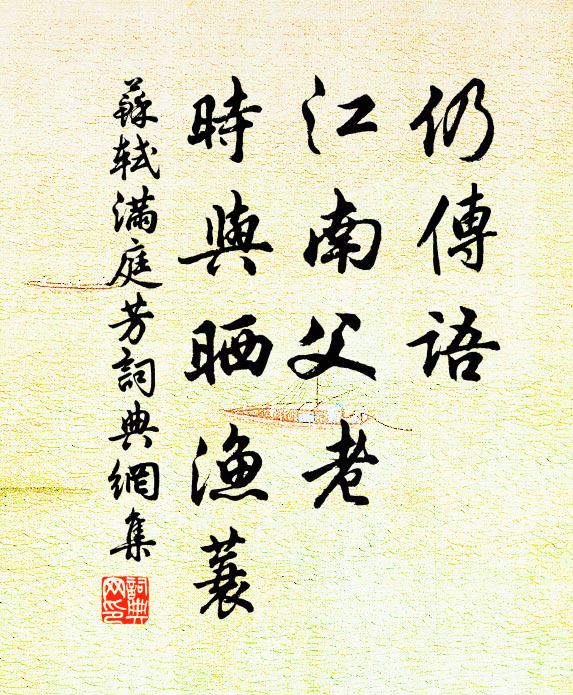 仍傳語
江南父老
時與晒漁蓑
蘇軾滿庭芳詞典網集
詞典网印